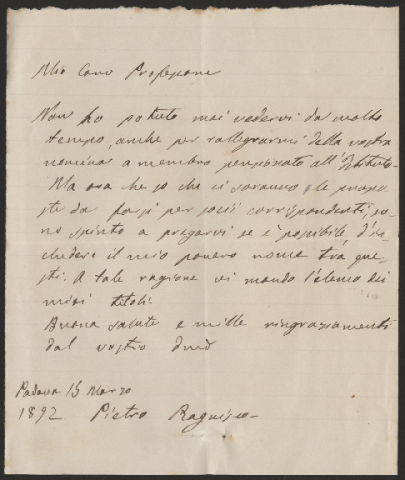 Mio Caro Professore
Non ho potuto mai vedervi da molto
tempo, anche per rallegrarmi della vostra
nomina a membro pensionato all'Istituto.
Ma ora che so che ci saranno le propo-
ste da farsi per socii corrispondenti, so-
no spinto a pregarvi se è possibile, d'in-
cludere il mio povero nome tra que-
sti. A tale ragione vi mando l'elenco dei
miei titoli.
Buona salute e mille ringraziamenti
dal vostro
Padova 15 Marzo
1892 Pietro Ragnisco